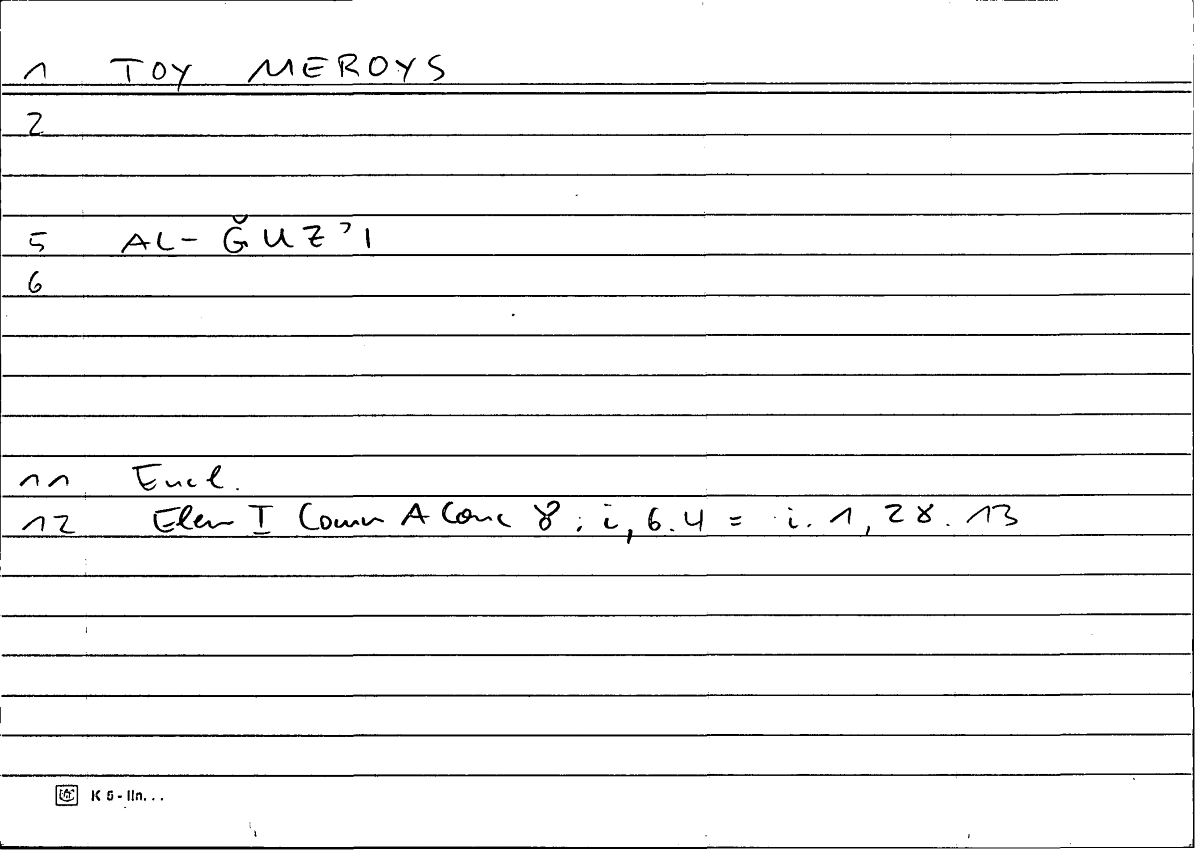 1 TOY MEROYS
2
5 AL-ǦUZ'I
6
11 Eucl.
12 Elem I Comm A Conc 8 : i, 6.4 = i. 1, 28. 13
K 5 - lin. . .